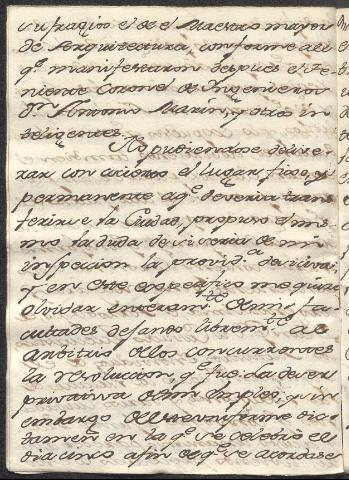 sufragios el de el Maestro mayor
de Arquitectura, conforme al
qe. manifestaron despues el Te-
niente Coronel de Ingenieros
Dn. Antonio Marin, y otro in-
teligentes.
No pudiendose delive-
rar con acierto el lugar fixo, y
permanente aqe. deveria tran-
ferirse la Ciudad, propuso el mis-
mo la duda de si seria de mi
inspecion la provida. decisiva;
y en este expecifico me quise
olvidar enteramte. de mis fa-
cultades dejando libremte. al
arbitrio de los concurrentes
la resolucion, qe. fue. La de ser
privativa de mi Empleo; y sin
embargo de el uniforme dic-
tamen en la qe. se celebró el
dia cinco afin de qe. se acordase